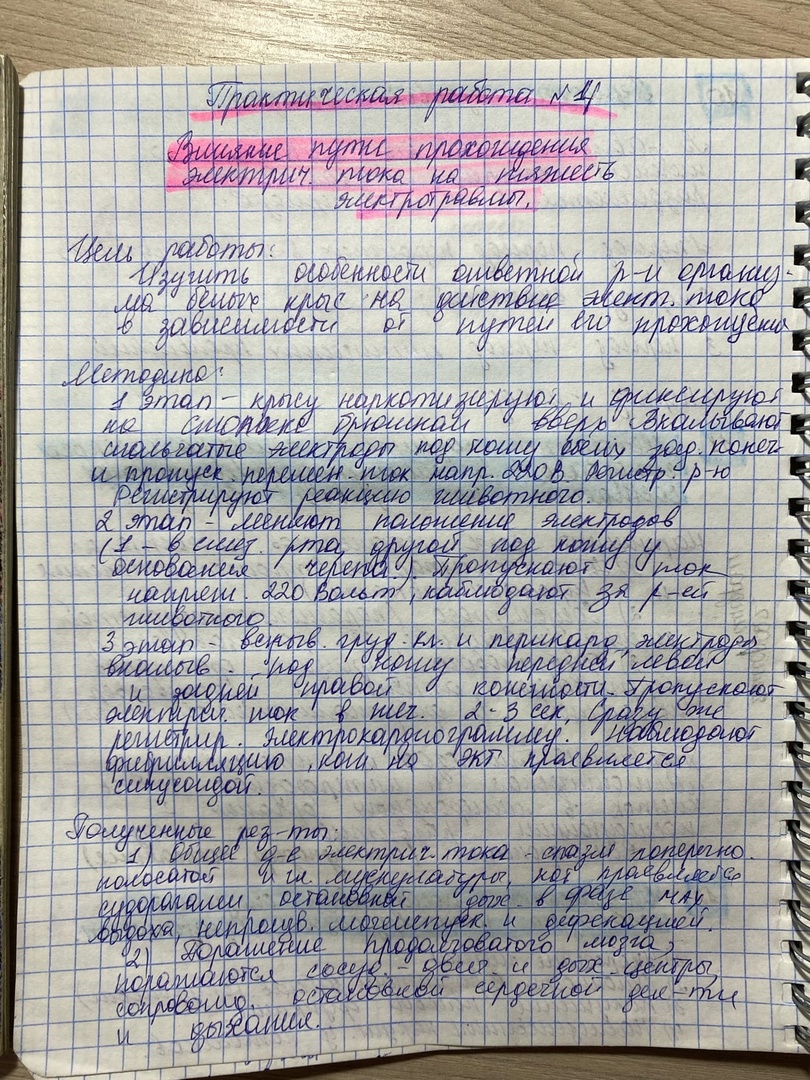 Практическая работа №4
Влияние пути прохождения
электрич. тока на тяжесть
электротравмы.
Цель работы:
Изучить особенности ответной р-и организ-
ма белых крыс на действие элект. тока
в зависимости от путей его прохождения
Методика:
1 этап – крысу наркотизируют и фиксируют
на столике брюшком вверх. Вкалывают
игольчатые электроды под кожу обеих зад. конеч.
и пропуск. перемен. ток напр. 220 В. Регистр. р-ю
Регистрируют реакцию животного.
2 этап – меняют положение электродов
(1 – в слиз. рта, другой под кожу у
основания черепа). Пропускают ток
напряж. 220 Вольт, наблюдают за р-ей
животного.
3 этап – вскрыв. груд. кл. и перикард, электроды
вкалыв. под кожу передней левой
и задней правой конечности. Пропускают
электрич. ток в теч. 2-3 сек, сразу же
регистрир. электрокардиограмму. Наблюдают
фибрилляцию, кот. на ЭКГ проявляется
синусоидой.
Полученные рез-ты:
1) Общее д-е электрич. тока – спазм поперечно.
полосатой и гл. мускулатуры, кот проявляется
судорогами остановкой дых. в фазе мах
выдоха, непроизв. мочеиспуск. и дефекацией.
2) Поражение продолговатого мозга,
поражаются сосуд. – двиг. и дых. центры
сопровожд. остановкой сердечной дея-ти
и дыхания.